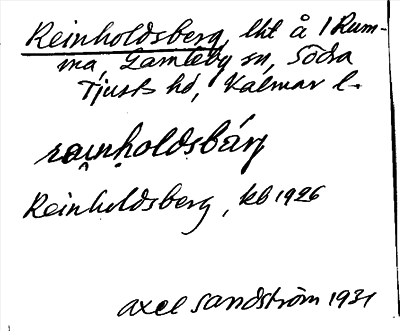 Reinholdsberg, lht å 1 Rum-
ma, Gamleby sn, Södra
Tjusts hd, Kalmar l.
rai̯nholdsbárj
Reinholdsberg, kb 1926
Axel Sandström 1931